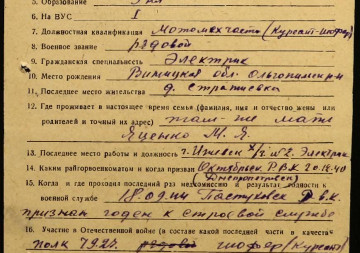 5. Образование
6. На ВУС I
7. Должностная квалификация Мотомехчасти (Курсант-шофер)
8. Военное звание рядовой
9. Гражданская специальность Электрик
10. Место рождения Виницкая обл. р-н
11. Последнее место жительства д. Стратиевка
12. Где проживает в настоящее время семья (фамилия, имя и отчество жены или
родителей и точный их адрес) там-же мать
Яценко М. Я.
13. Последнее место работы и должность г. Ижевск Электрик
14. Каким райгорвоенкоматом и когда призван Октябрьск. Р.В.К. 20-10-40
(Днепропетровск)
15. Когда и где проходил последний раз медкомиссию и результат годности к
военной службе Р.В.К.
признан годен к строевой службе
16. Участие в Отечественной войне (в составе какой последней части и в качестве
полк рядовой шофер (Курсант)